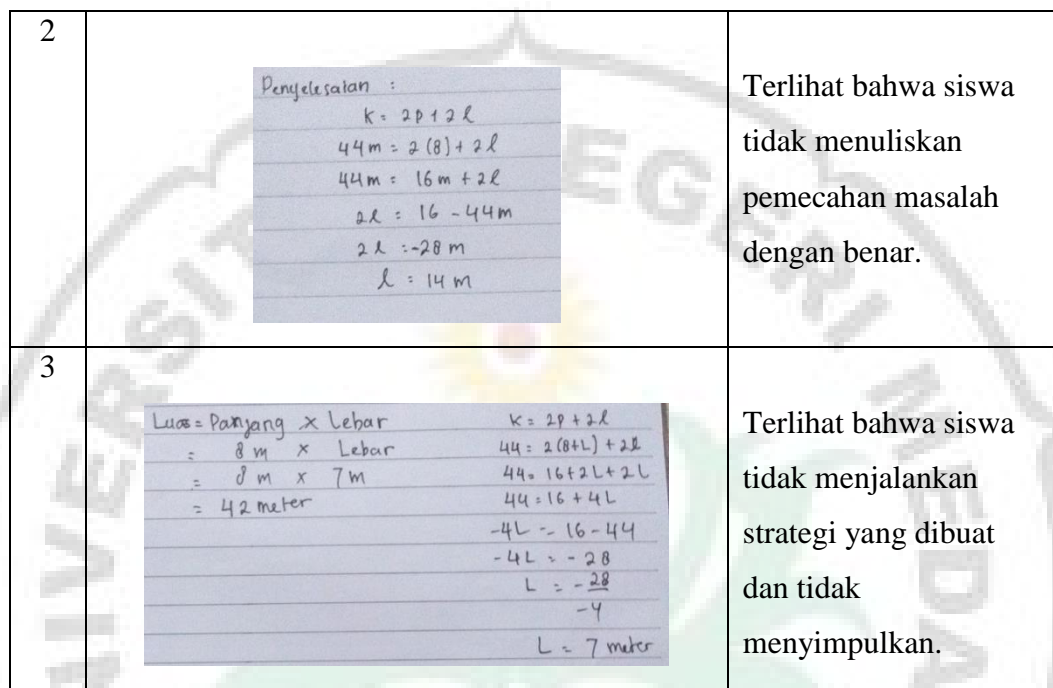 2
Penyelesaian :
K = 2p + 2l
44m = 2(8) + 2l
44m = 16m + 2l
2l = 16 - 44m
2l = -28 m
l = 14 m
Terlihat bahwa siswa
tidak menuliskan
pemecahan masalah
dengan benar.
3
Luas = Panjang x Lebar
= 8 m x Lebar
= 8 m x 7 m
= 42 meter
K = 2p + 2l
44 = 2(8+L) + 2l
44 = 16+2L+2L
44 = 16 + 4L
-4L = 16 - 44
-4L = -28
L = -28
-4
L = 7 meter
Terlihat bahwa siswa
tidak menjalankan
strategi yang dibuat
dan tidak
menyimpulkan.